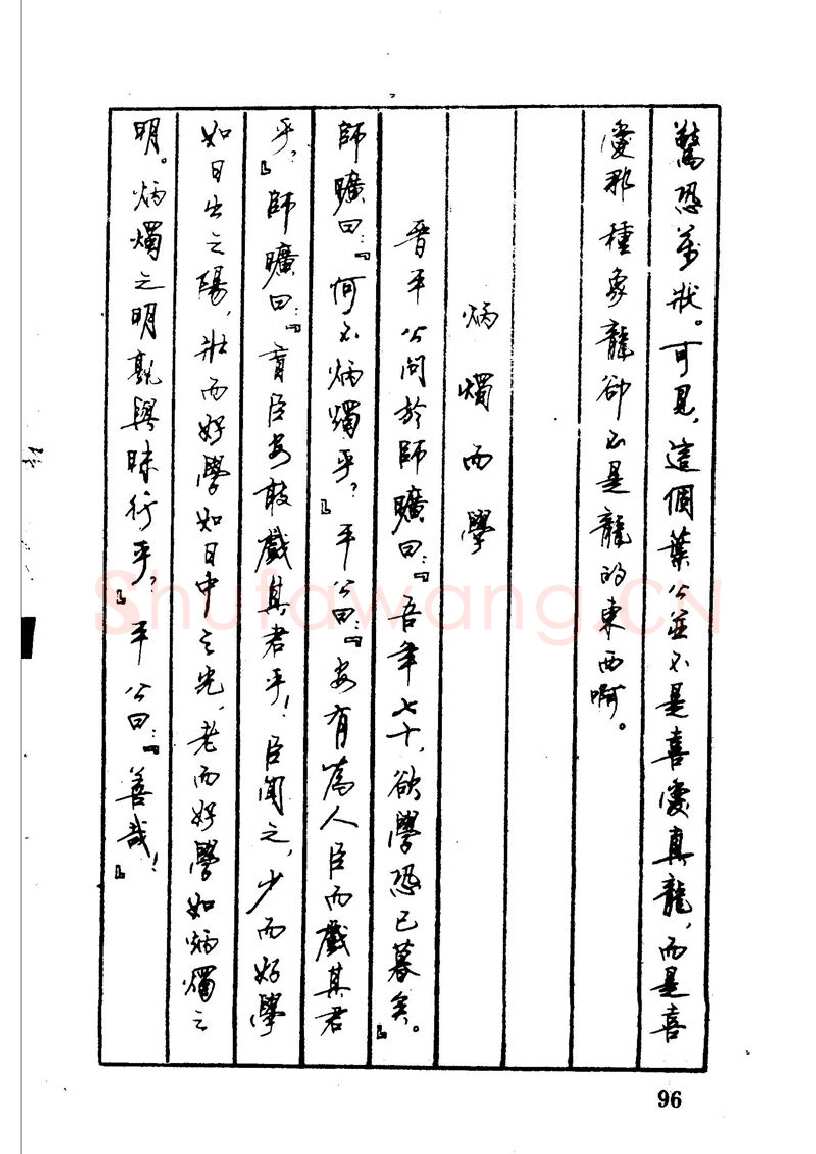 驚恐萬狀。可見，這個葉公並不是喜愛真龍，而是喜
愛那種象龍卻不是龍的東西啊。
炳燭而學
晉平公問於師曠曰：『吾年七十，欲學恐已暮矣。』
師曠曰：『何不炳燭乎？』平公曰：『安有為人臣而戲其君
乎？』師曠曰：『盲臣安敢戲其君乎！臣聞之，少而好學
如日出之陽，壯而好學如日中之光，老而好學如炳燭之
明。炳燭之明孰與昧行乎？』平公曰：『善哉！』
Shufawang.CN
96